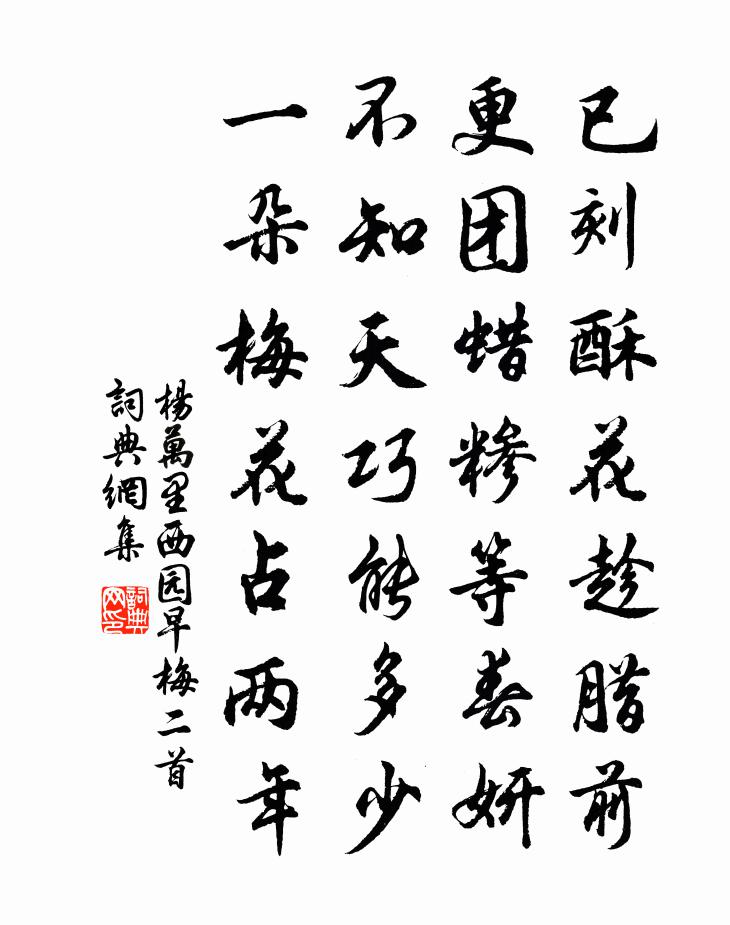 已刻酥花趁腊前
更团蜡糁等春妍
不知天巧能多少
一朵梅花占两年
楊萬里西园早梅二首
詞典網集
詞典网印